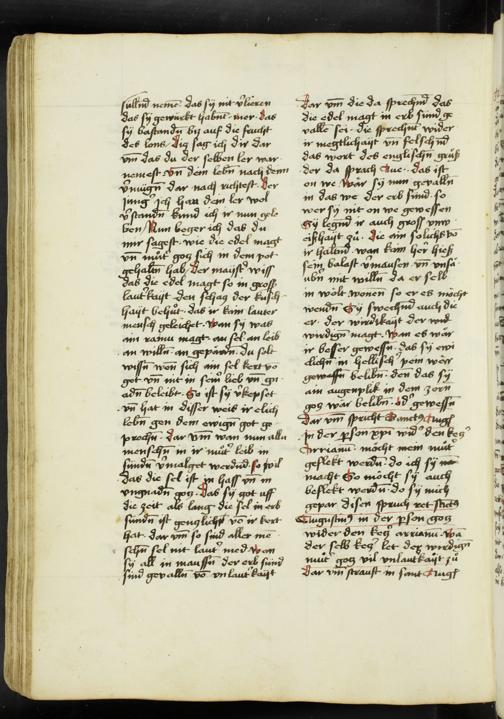 sullend nemē das sy nit v̔lieren
das sy gewürkt habnt mer das
sy bastandn biß auf die frucht
des lons Diß sag ich dir dar
vm das du der selben ler war
nemest vn̄ dem lebn nach dem
v̔mügn dar nach richtest Der
jung ich han den ler wol
v̔standn kund ich ir nun gele
ben Nun beger ich das du
mir sagest wie die edel magt
vn̄ mut̔ goß sich in dem pot
gehaltn hab Der mayst̔ wiss
das die edel magt so in gross
laut̔kayt den schaß der kusch
hayt behut das ir kain lauter
mensch geleichet wan sy was
ain rainu magt an sel an leib
an willn an gepardn Du solt
wissn wen sich ain sel kert vo
got vn̄ nit in seim lieb vn̄ gn
adn beleibt So ist sy v̔kepset
vn̄ hat in disser weis ir elich
lebn gen dem ewign got ge
prochn dar vm wan nun allu
menschn in ir mut̔ leib in
sundn v̔malget werdnt so vil
das die sel ist in hass vn̄ in
vngnadn goß Das sy got auff
die zeit als lang die sel in erb
sundn ist genßlichn vo ir kert
hat dar vm so sind aller me
schn sel nit laut̔ med wan
sy all in maussn der erb sund
sind gevalln vo vnlaut̔kayt
Dar vm die da sprechnd das
die edel magt in erb sund ge
valln sei die sprechnd wider
ir megtlichayt vn̄ felschnd
das wort des englischn gruß
der da sprach Aue das ist
on we wär sy nun gevalln
in das we der erb sund so
wer sy nit on we gewessen
Sy legnd ir auch gross vnw
eishayt zu Die ain solichs po
ir haltnd wan kain her hieß
sein balast v̔mausen vn̄ vnsu
ubn̄ mit willn da er selb
in wölt wonen so er es möcht
wendn̄ Sy swechnd auch die
er der wirdikayt der wir
wirdign̄ magt wan es wär
ir besser gewessn̄ das sy ewi
clichn̄ in hellisch̔ pein wer
gewessn̄ belibn̄ den das sy
ain augenplik in dem zorn
goß wär belibn̄ od̔ gewessn̄
Dar vm spricht Sanctꝰ Augꝰ
in der pson xpi wid̔ den keß
Arrianū möcht mein mut̔
geflekt werdn̄ do ich sy
macht So möcht sy auch
beflekt werdn̄ do sy mich
gepar disen spruch ret sāctꝰ
Augustinꝰ in der pson goß
wider den keß arrianū wā
der selb keß let der wirdign̄
mut̔ goß vil vnlaut̔kayt zu
Dar vm strauft in sant Augꝰ